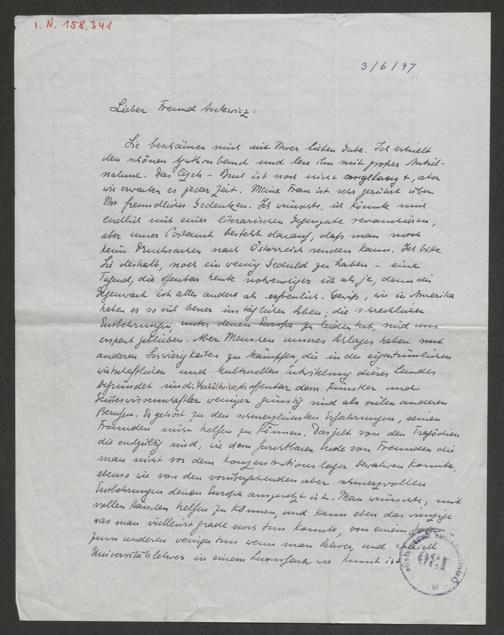 I. N. 158.341
3/6/47
Lieber Freund
Sie beschämen mich mit Ihrer lieben Gabe. Ich erhielt
den schönen band und lese ihn mit großer Anteil-
nahme. Das ist noch nicht angelangt, aber
wir erwarten es jeder Zeit. Meine Frau ist sehr gerührt über
Ihr freundliches Gedenken. Ich wünschte, ich könnte mich
endlich mit einer literarischen Gegengabe revanchieren,
aber unser Postamt besteht darauf, daß man noch
keine Drucksachen nach Österreich senden kann. Ich bitte
Sie deshalb, noch ein wenig Geduld zu haben - eine
Tugend, die offenbar heute notwendiger ist als je, denn die
Gegenwart ist alles andere als erfreulich. Gewiss, wir in Amerika
haben es so viel besser im täglichen Leben; die schrecklichen
Entbehrungen, unter denen Europa zu leiden hat, sind uns
erspart geblieben. Aber Menschen unseres Schlages haben mit
anderen Schwierigkeiten zu kämpfen, die in der eigentümlichen
wirtschaftlichen und kulturellen Entwicklung dieses Landes
begründet sind; Verhältnisse, die offenbar dem Künstler und
Geisteswissenschaftler weniger günstig sind als vielen anderen
Berufen. Es gehört zu den schmerzlichsten Erfahrungen, seinen
Freunden nicht helfen zu können. Das gilt von den Tragödien
die endgültig sind, wie dem furchtbaren Ende von Freunden die
man nicht vor dem Konzentrationslager bewahren konnte,
ebenso wie von den vorübergehenden aber schmerzvollen
Entbehrungen denen Europa ausgesetzt ist. Man wünschte, mit
vollen Händen helfen zu können, und kann eben das wenige
was man vielleicht grade noch tun konnte, von einem
zum anderen weniger tun wenn man Lehrer, und speziell
Universitätslehrer in einem Luxusfach wie Kunst ist